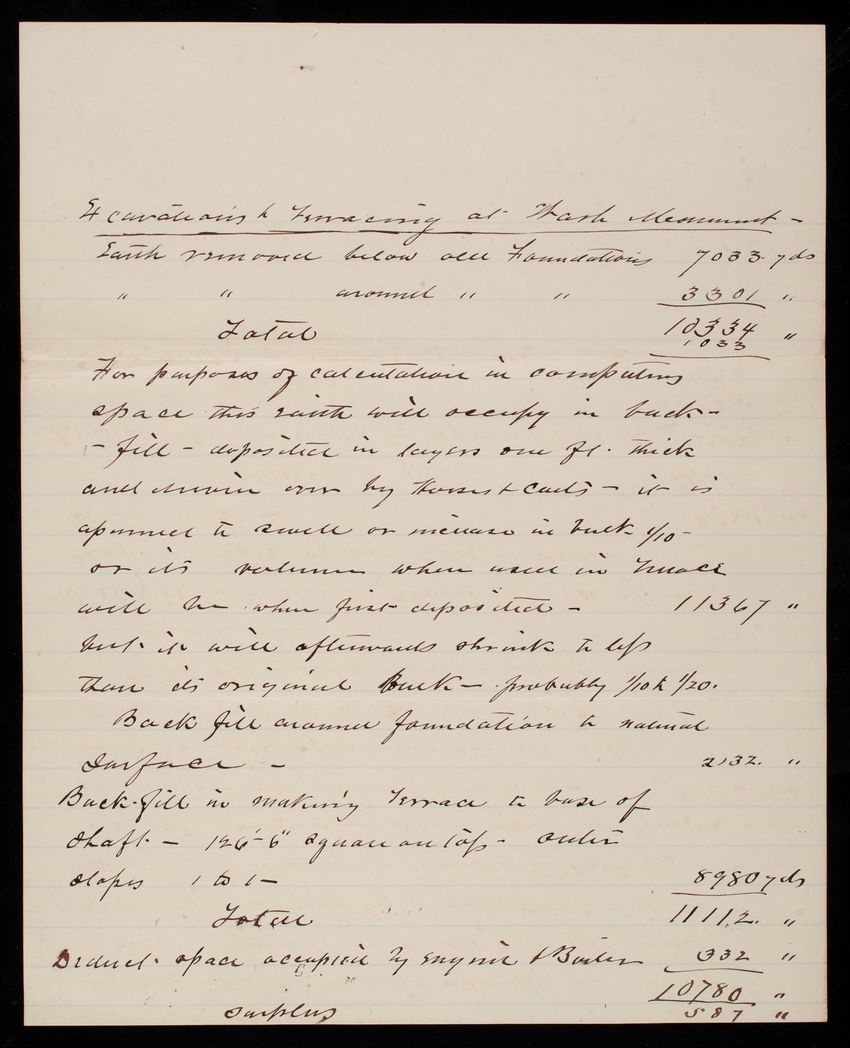 Excavations & Terracing at Wash Monument -
Earth removed below old Foundations 7033 yds
" " around " " 3301 "
Total 10334 "
1033
For purposes of calculation in computing
space this earth will occupy in back-
- fill - deposited in layers one ft. thick
and driven over by Horses & Carts - it is
assumed to swell or increase in bulk 1/10 -
or its volume when used in terrace
will be when first deposited - 11367 "
but it will afterwards shrink to less
than its original Bulk - probably 1/10 to 1/20.
Back fill around foundation to natural
surface - 2132. "
Back-fill in making Terrace to base of
shaft - 126'-6" square on top - outer
slopes 1 to 1 - 8980 yds
Total 11112. "
Deduct space occupied by engine & Boiler 332 "
10780 "
Surplus 587 "